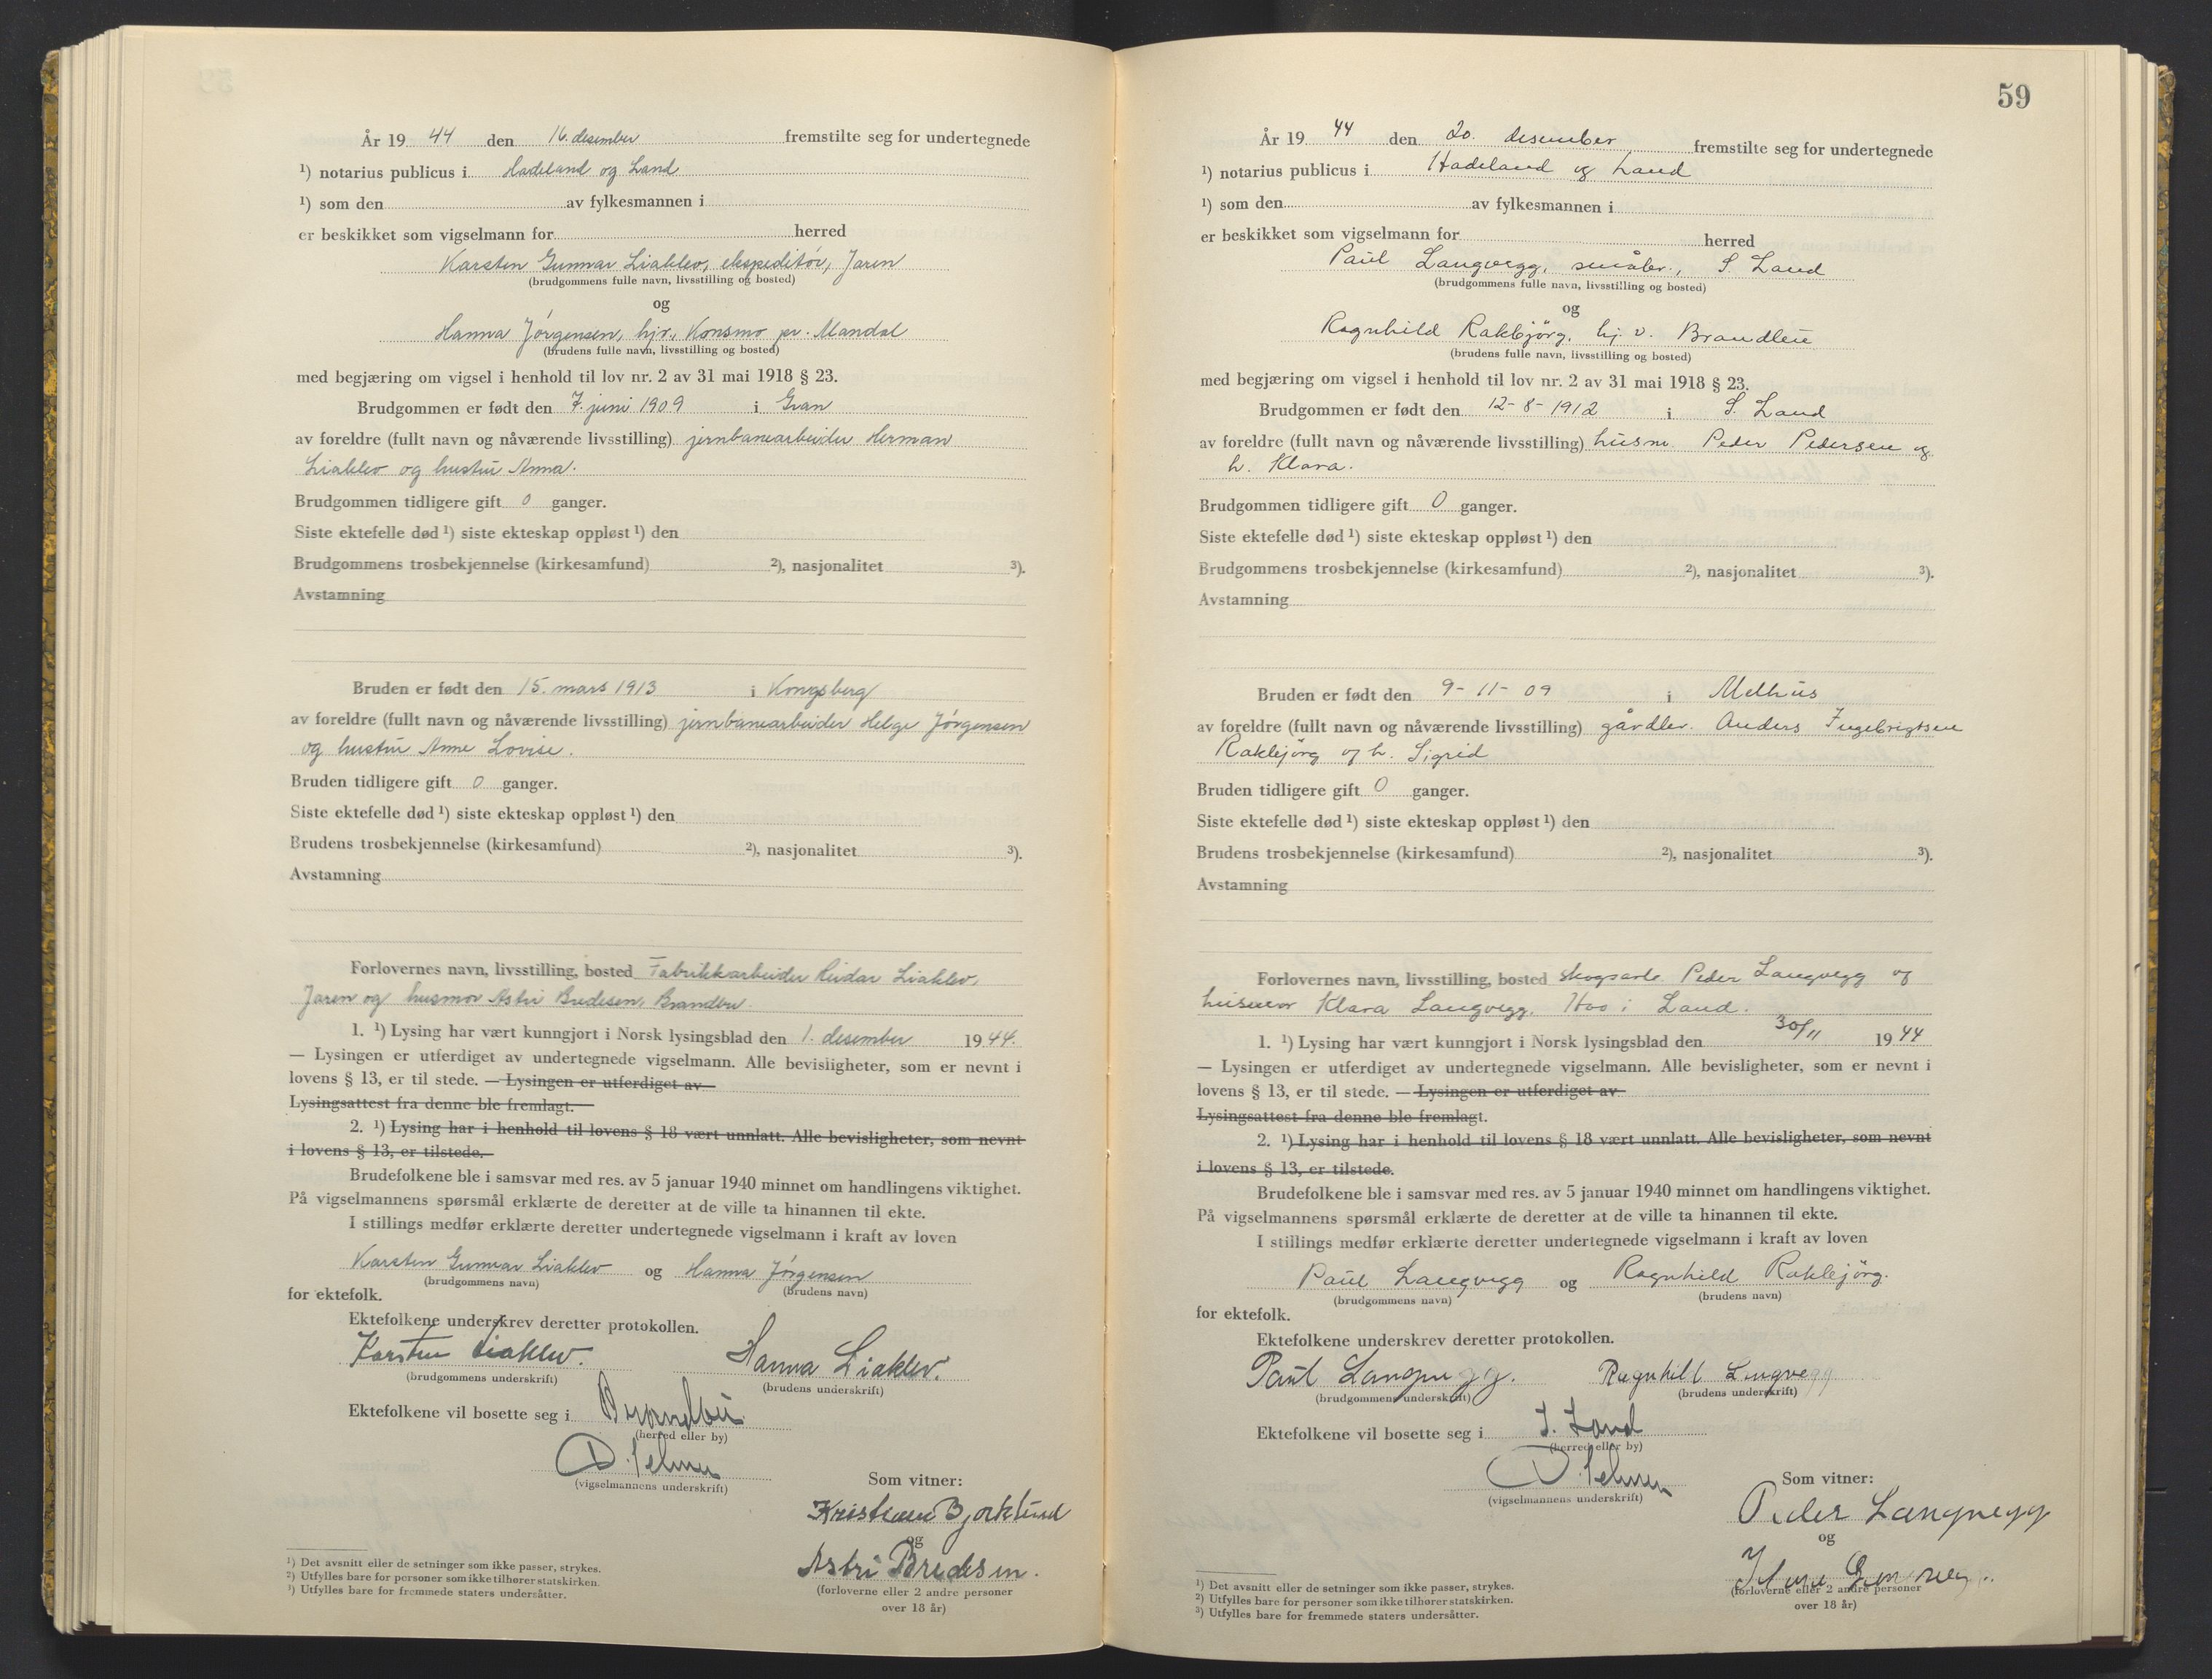 År 19 44 den 16. desember fremstilte seg for undertegnede
¹) notarius publicus i Hadeland og Land
¹) som den av fylkesmannen i
er beskikket som vigselmann for herred
Karsten Gunnar Liaklev, ekspeditör, Jaren
(brudgommens fulle navn, livsstilling og bosted)
og
Hanna Jörgensen, hjv., Konsmo pr. Mandal
(brudens fulle navn, livsstilling og bosted)
med begjæring om vigsel i henhold til lov nr. 2 av 31 mai 1918 § 23.
Brudgommen er født den 7. juni 1909 i Gran
av foreldre (fullt navn og nåværende livsstilling) jernbanearbeider Herman
Liaklev og hustru Anna.
Brudgommen tidligere gift 0 ganger.
Siste ektefelle død ¹) siste ekteskap oppløst ¹) den
Brudgommens trosbekjennelse (kirkesamfund) ²), nasjonalitet ³).
Avstamning
Bruden er født den 15. mars 1913 i Kongsberg
av foreldre (fullt navn og nåværende livsstilling) jernbanearbeider Helge Jörgensen
og hustru Anne Lovise.
Bruden tidligere gift 0 ganger.
Siste ektefelle død ¹) siste ekteskap oppløst ¹) den
Brudens trosbekjennelse (kirkesamfund) ²), nasjonalitet ³).
Avstamning
Forlovernes navn, livsstilling, bosted Fabrikkarbeider Reidar Liaklev,
Jaren og husmor Astri Bredesen, Brandbu
1. ¹) Lysing har vært kunngjort i Norsk lysingsblad den 1. desember 1944.
— Lysingen er utferdiget av undertegnede vigselmann. Alle bevisligheter, som er nevnt i
lovens § 13, er til stede. — Lysingen er utferdiget av
Lysingsattest fra denne ble fremlagt.
2. ¹) Lysing har i henhold til lovens § 18 vært unnlatt. Alle bevisligheter, som nevnt
i lovens § 13, er tilstede.
Brudefolkene ble i samsvar med res. av 5 januar 1940 minnet om handlingens viktighet.
På vigselmannens spørsmål erklærte de deretter at de ville ta hinannen til ekte.
I stillings medfør erklærte deretter undertegnede vigselmann i kraft av loven
Karsten Gunnar Liaklev og Hanna Jörgensen
(brudgommens navn) (brudens navn)
for ektefolk.
Ektefolkene underskrev deretter protokollen.
Karsten Liaklev. Hanna Liaklev.
(brudgommens underskrift) (brudens underskrift)
Ektefolkene vil bosette seg i Brandbu
(herred eller by)
(vigselmannens underskrift)
Som vitner:
Kristian Bjorklund
og
Astri Bredesen.
(forloverne eller 2 andre personer
over 18 år)
¹) Det avsnitt eller de setninger som ikke passer, strykes.
²) Utfylles bare for personer som ikke tilhører statskirken.
³) Utfylles bare for fremmede staters undersåtter.
59
År 19 44 den 20. desember fremstilte seg for undertegnede
¹) notarius publicus i Hadeland og Land
¹) som den av fylkesmannen i
er beskikket som vigselmann for herred
Paul Langvegg, småbr., S. Land
(brudgommens fulle navn, livsstilling og bosted)
og
Ragnhild Rakbjörg, hj v. Brandbu
(brudens fulle navn, livsstilling og bosted)
med begjæring om vigsel i henhold til lov nr. 2 av 31 mai 1918 § 23.
Brudgommen er født den 12-8-1912 i S. Land
av foreldre (fullt navn og nåværende livsstilling) husm. Peder Pedersen og
h. Klara.
Brudgommen tidligere gift 0 ganger.
Siste ektefelle død ¹) siste ekteskap oppløst ¹) den
Brudgommens trosbekjennelse (kirkesamfund) ²), nasjonalitet ³).
Avstamning
Bruden er født den 9-11-09 i Melhus
av foreldre (fullt navn og nåværende livsstilling) gårdbr. Anders Ingebrigtsen
Rakbjörg og h. Sigrid
Bruden tidligere gift 0 ganger.
Siste ektefelle død ¹) siste ekteskap oppløst ¹) den
Brudens trosbekjennelse (kirkesamfund) ²), nasjonalitet ³).
Avstamning
Forlovernes navn, livsstilling, bosted skogsarb. Peder Langvegg og
husmor Klara Langvegg, Hov i Land.
1. ¹) Lysing har vært kunngjort i Norsk lysingsblad den 30/11 1944
— Lysingen er utferdiget av undertegnede vigselmann. Alle bevisligheter, som er nevnt i
lovens § 13, er til stede. — Lysingen er utferdiget av
Lysingsattest fra denne ble fremlagt.
2. ¹) Lysing har i henhold til lovens § 18 vært unnlatt. Alle bevisligheter, som nevnt
i lovens § 13, er tilstede.
Brudefolkene ble i samsvar med res. av 5 januar 1940 minnet om handlingens viktighet.
På vigselmannens spørsmål erklærte de deretter at de ville ta hinannen til ekte.
I stillings medfør erklærte deretter undertegnede vigselmann i kraft av loven
Paul Langvegg og Ragnhild Rakbjörg.
(brudgommens navn) (brudens navn)
for ektefolk.
Ektefolkene underskrev deretter protokollen.
Paul Langvegg. Ragnhild Langvegg
(brudgommens underskrift) (brudens underskrift)
Ektefolkene vil bosette seg i S. Land
(herred eller by)
(vigselmannens underskrift)
Som vitner:
Peder Langvegg
og
(forloverne eller 2 andre personer
over 18 år)
¹) Det avsnitt eller de setninger som ikke passer, strykes.
²) Utfylles bare for personer som ikke tilhører statskirken.
³) Utfylles bare for fremmede staters undersåtter.